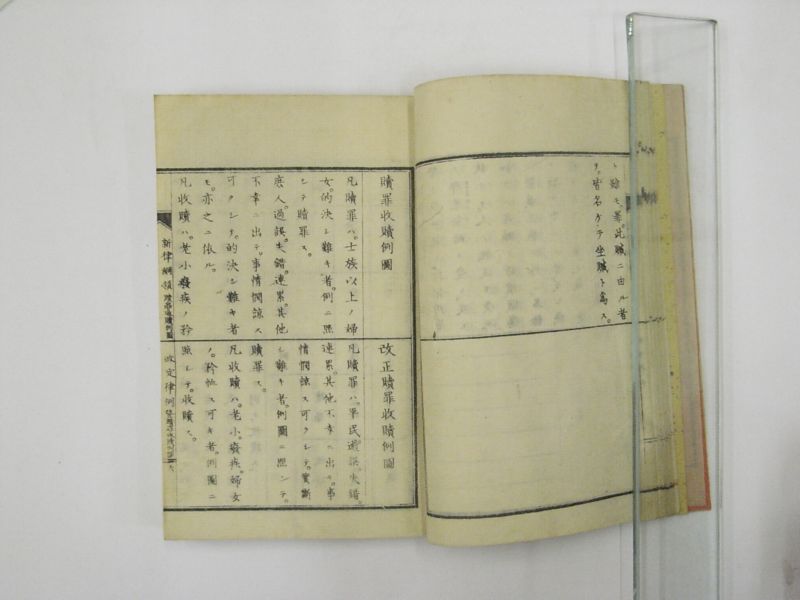 ト雖モ。罪。此贓ニ由ル者
ハ。皆名ケテ坐贓ト爲ス。
贖罪收贖例圖
凡贖罪ハ。士族以上ノ婦
女。的決シ難キ者。例ニ照
シテ贖罪ス。
庶人。過誤。失錯。連累。其他
不幸ニ出テ。事情憫諒ス
可クシテ。的決シ難キ者
モ。亦之ニ依ル。
凡收贖ハ。老小癈疾ノ矜
改正贖罪收贖例圖
凡贖罪ハ。平民。過誤。失錯。
連累。其他不幸ニ出テ。事
情憫諒ス可クシテ。實斷
シ難キ者。例圖ニ照シテ。
贖罪ス。
凡收贖ハ。老小。癈疾。婦女
ノ。矜恤ス可キ者。例圖ニ
照シテ。收贖ス。
新律綱領 贖罪收贖例圖
改定律例